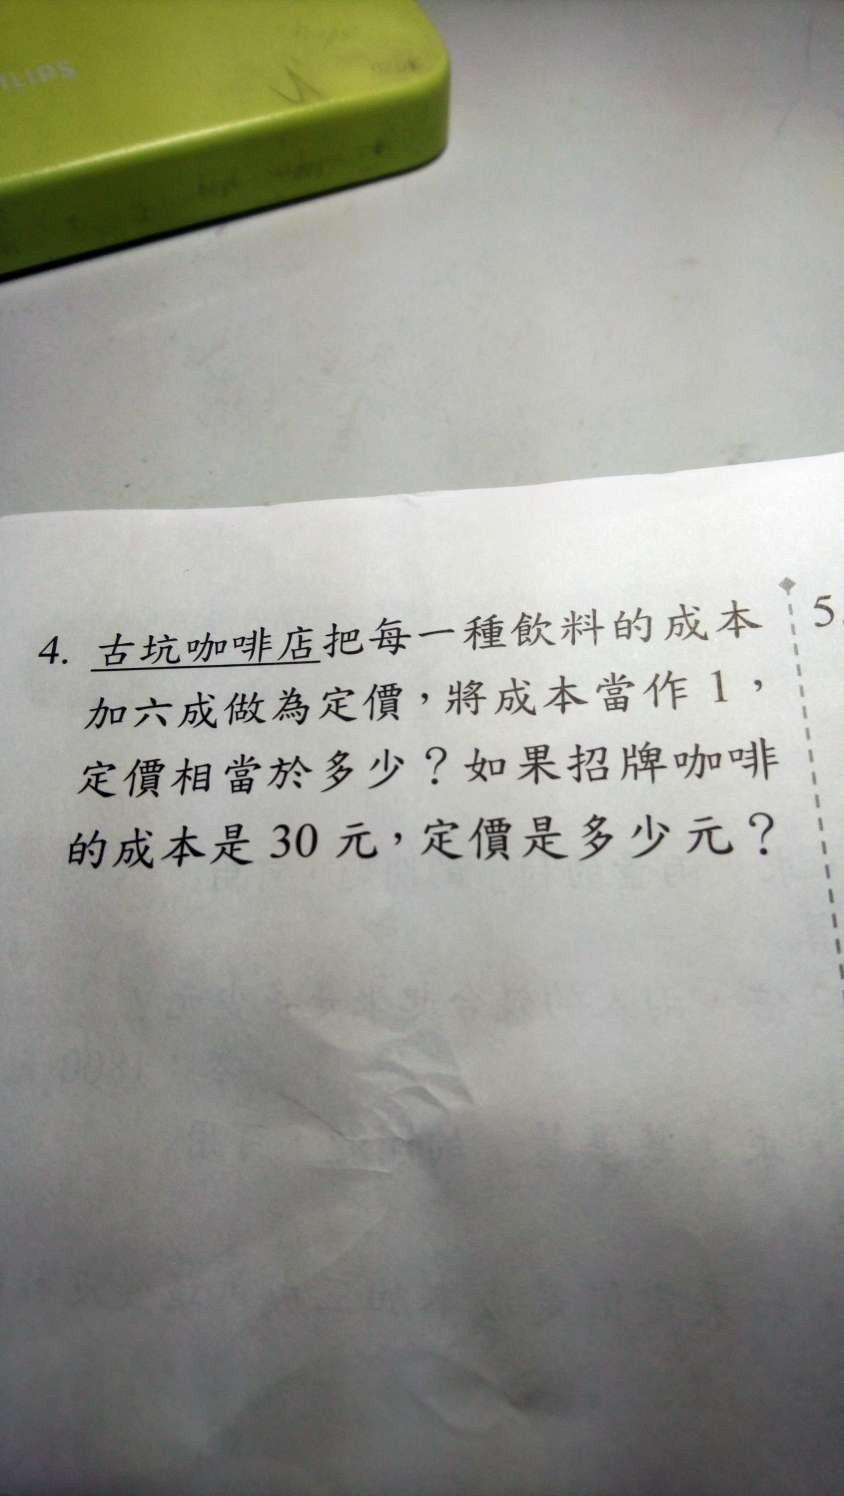 4. 古坑咖啡店把每一種飲料的成本
加六成做為定價，將成本當作 1，
定價相當於多少？如果招牌咖啡
的成本是 30 元，定價是多少元？
5.